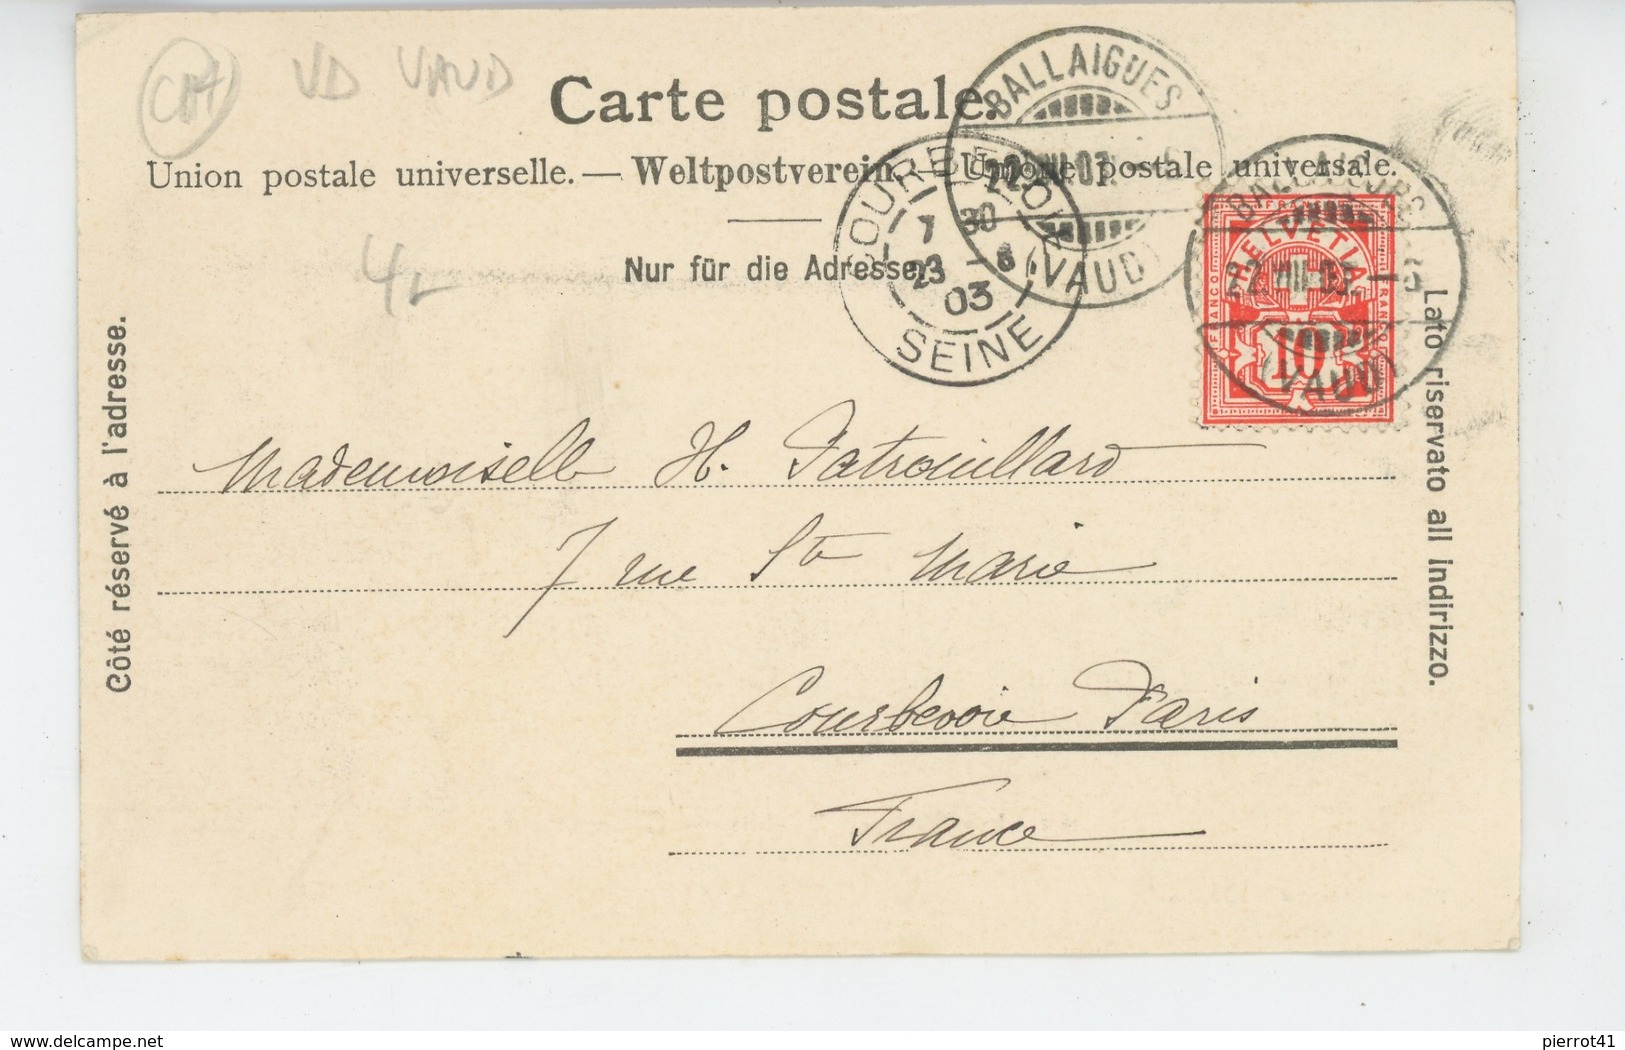 VD VAUD
Carte postale.
BALLAIGUES
22.VIII.03.
(VAUD)
Union postale universelle. — Weltpostverein. Unione postale universale.
COURBEVOIE
7 30
23 - 8
03
SEINE
BALLAIGUES
22.VIII.03.-5
(VAUD)
FRANCO
HELVETIA
FRANCO
10
Nur für die Adresse.
Côté réservé à l'adresse.
Lato riservato all indirizzo.
Mademoiselle H. Patrouillard
7 rue Ste Marie
Courbevoie Paris
France
pierrot41